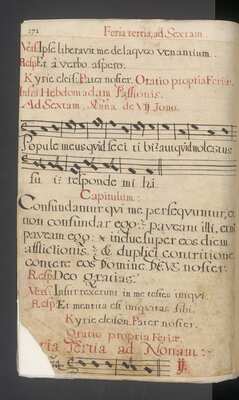 272 Feria tertia, ad Sextam
Vers. Ipse liberavit me de laqueo venantium.
Resp. Et à verbo aspero.
Kyrie eleis. Pater noster. Oratio propria Feriæ.
Infra Hebdomadam Passionis.
Ad Sextam. Añna de VII Tono.
Popule meus quid feci tibi? aut quid molestus
fui? responde mihi.
Capitulum.
Confundantur qui me persequuntur, et
non confundar ego: paveant illi, et non
paveam ego: induc super eos diem
afflictionis, & duplici contritione
contere eos Domine DEUS noster.
Resp. Deo gratias.
Vers. Insurrexerunt in me testes iniqui.
Resp. Et mentita est iniquitas sibi.
Kyrie eleison. Pater noster.
Oratio propria Feriæ.
Feria Tertia ad Nonam.